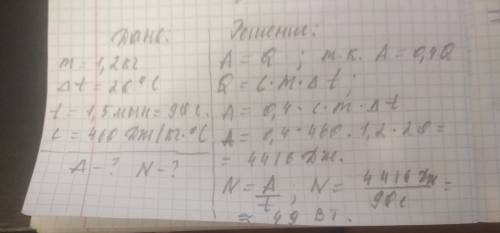 Дано:
m = 1,2 кг
Δt = 20°C
t = 1,5 мин = 90 с.
c = 460 Дж/кг·°C
A – ? N – ?
Решение:
A = Q ; т.к. A = 0,4Q
Q = c·m·Δt ;
A = 0,4·c·m·Δt
A = 0,4·460·1,2·20 =
= 4416 Дж.
N = A/t ; N = 4416 Дж/90 с =
≈ 49 Вт.